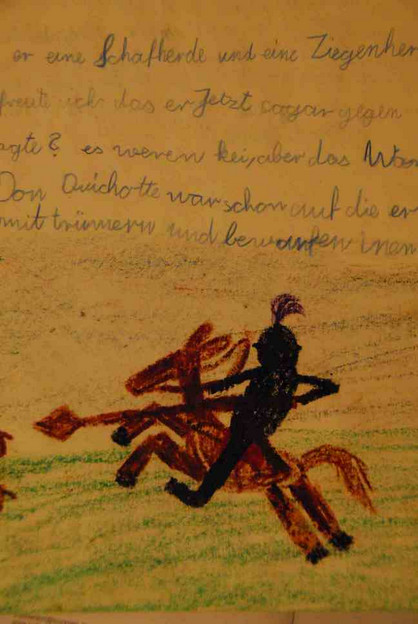 er eine Schafherde und eine Ziegenher
freute sich das er Jetzt sogar gegen
agte? es weren kei, aber das War
Don Quichotte war schon auf die er
mit trümern und bewarfen inen